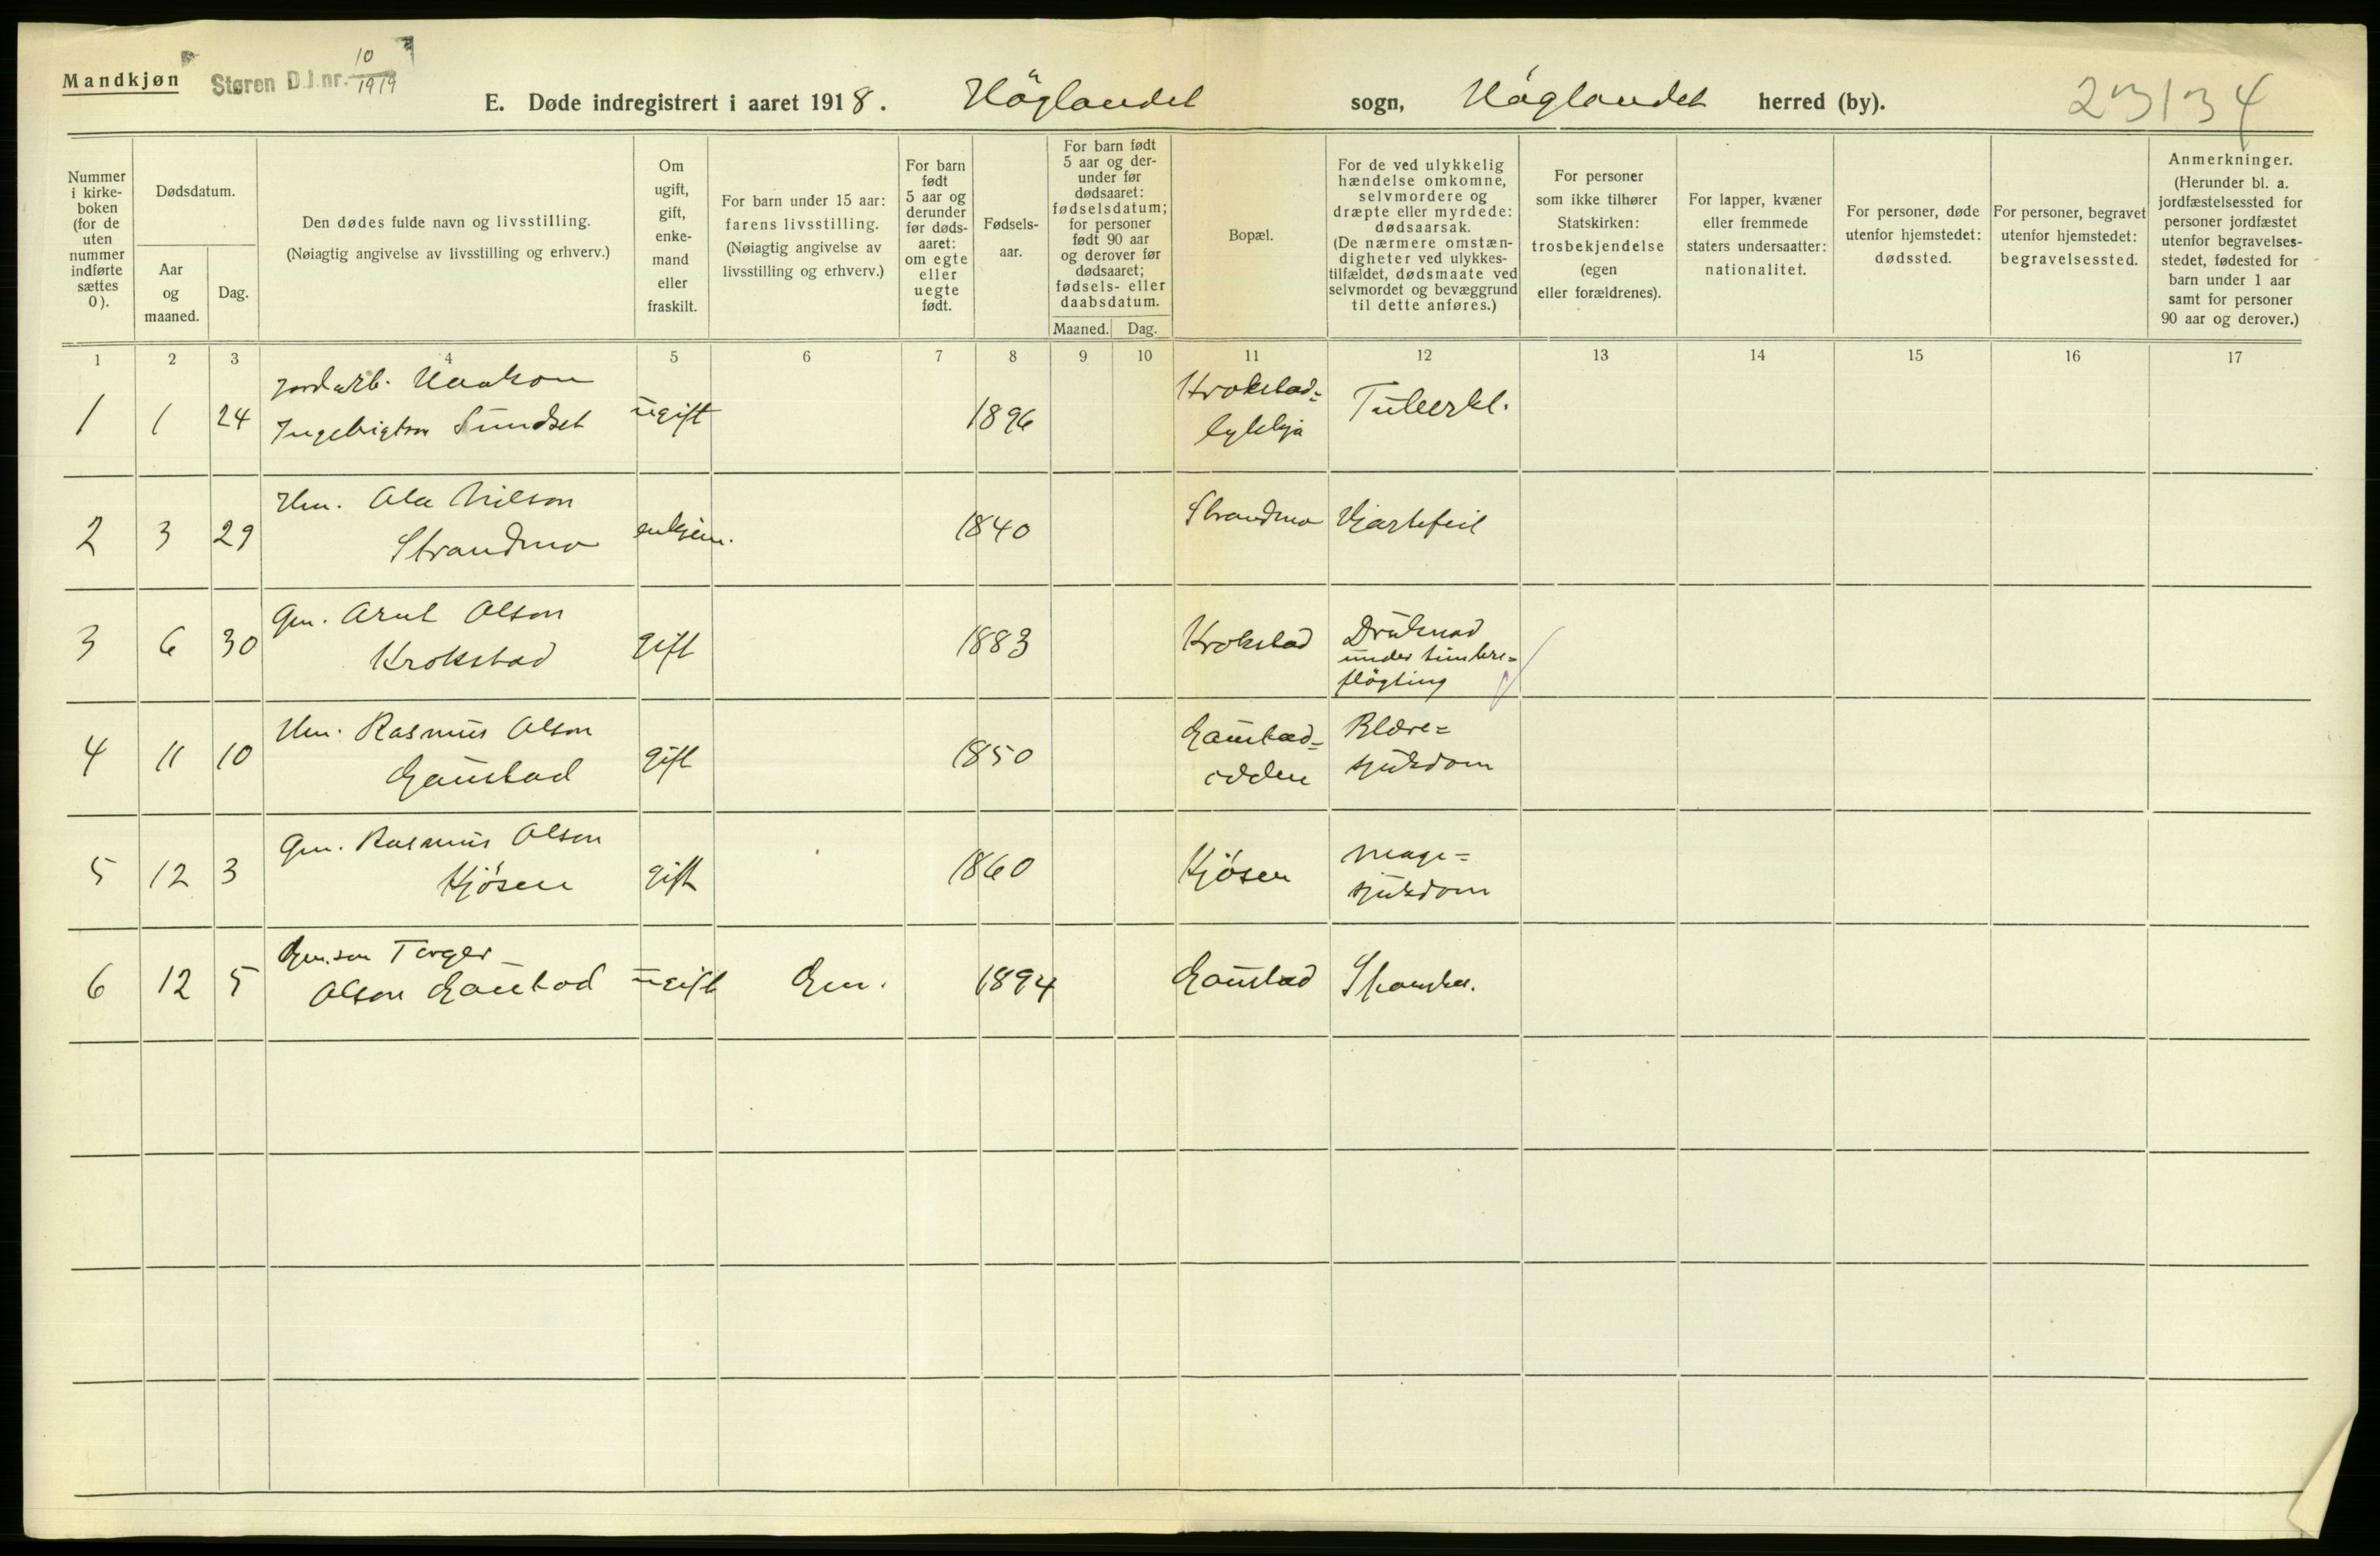 Mandkjøn
Støren D.J.nr. 10/1919
E. Døde indregistrert i aaret 1918. Höglandet sogn, Höglandet herred (by).
23134
Nummer i kirke-boken (for de uten nummer indførte sættes 0).
Dødsdatum.
Aar og maaned.
Dag.
Den dødes fulde navn og livsstilling.
(Nøiagtig angivelse av livsstilling og erhverv.)
Om ugift, gift, enke-mand eller fraskilt.
For barn under 15 aar: farens livsstilling.
(Nøiagtig angivelse av livsstilling og erhverv.)
For barn født 5 aar og derunder før døds-aaret: om egte eller uegte født.
Fødsels-aar.
For barn født 5 aar og der-under før dødsaaret: fødselsdatum; for personer født 90 aar og derover før dødsaaret; fødsels- eller daabsdatum.
Maaned. Dag.
Bopæl.
For de ved ulykkelig hændelse omkomne, selvmordere og dræpte eller myrdede: dødsaarsak.
(De nærmere omstæn-digheter ved ulykkes-tilfældet, dødsmaate ved selvmordet og bevæggrund til dette anføres.)
For personer som ikke tilhører Statskirken: trosbekjendelse (egen eller forældrenes).
For lapper, kvæner eller fremmede staters undersaatter: nationalitet.
For personer, døde utenfor hjemstedet: dødssted.
For personer, begravet utenfor hjemstedet: begravelsessted.
Anmerkninger.
(Herunder bl. a. jordfæstelsessted for personer jordfæstet utenfor begravelses-stedet, fødested for barn under 1 aar samt for personer 90 aar og derover.)
1 2 3 4 5 6 7 8 9 10 11 12 13 14 15 16 17
jordarb. Haakon
1 1 24 Ingebrigtson Sundset ugift 1896 Krokstad= Tuberkl.
Hm. Ola Nilson
2 3 29 Strandmo enkjem. 1840 Strandmo Hjartefeil
Gm. Arnt Olson
3 6 30 Krokstad gift 1883 Krokstad Druknad
under timber=
fløgting
Hm. Rasmus Olson
4 11 10 Gaustad gift 1850 Gaustad= Blære=
odden sjukdom
Gm. Rasmus Olson
5 12 3 Kjøsen gift 1860 Kjøsen Mage=
sjukdom
Gm.son Torger
6 12 5 Olson Gaustad ugift Gm. 1894 Gaustad Spanska.